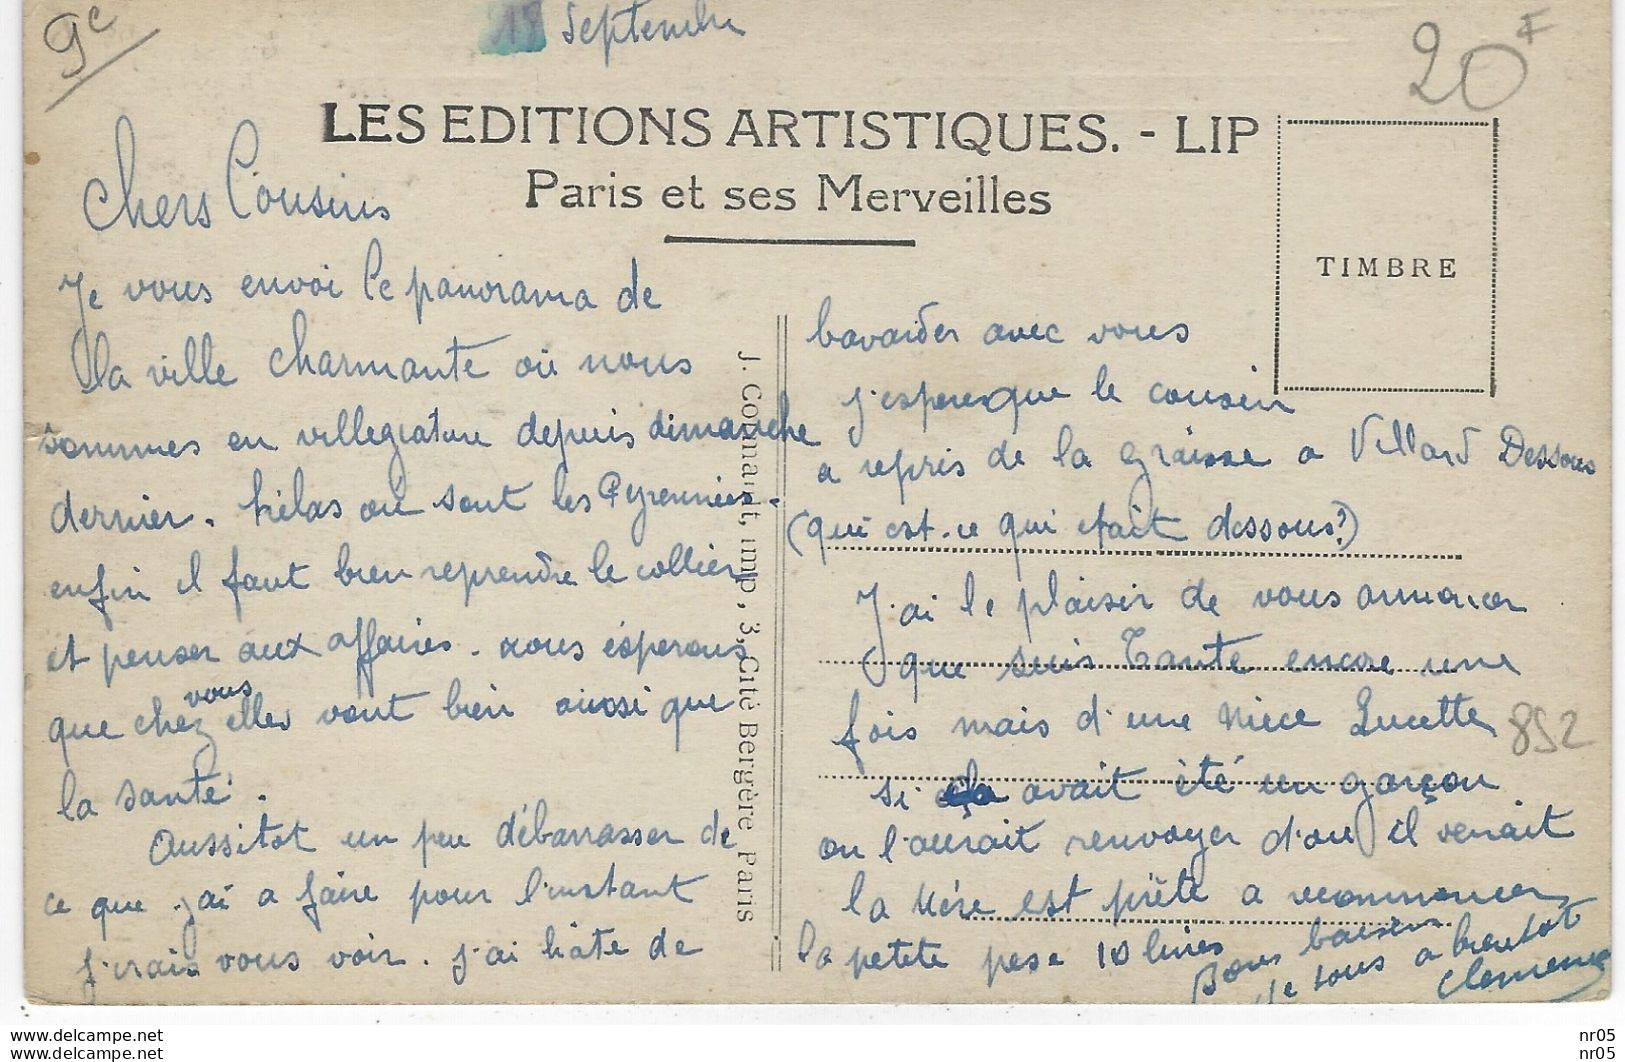 9c
18 Septembre
20F
LES EDITIONS ARTISTIQUES. - LIP
Paris et ses Merveilles
TIMBRE
Chers Cousins
Je vous envoi le panorama de
la ville charmante où nous
sommes en villegiature depuis dimanche
dernier. hélas où sont les Pyrennées.
enfin il faut bien reprendre le collier
et penser aux affaires. nous ésperons
que chez vous elles vont bien ainssi que
la santé.
Aussitot un peu débarrasser de
ce que j'ai a faire pour l'instant
j'irais vous voir. j'ai hâte de
J. Connault, imp., 3, Cité Bergère, Paris
bavarder avec vous
j'esperes que le cousin
a repris de la graisse a Villard Dessous
(qui est-ce qui etait dessous?)
J'ai le plaisir de vous annoncer
que suis Tante encore une
fois mais d'une niece Lucette
si ça avait été un garçon
on l'aurait renvoyer d'ou il venait
la Mére est prête a recommencer
la petite pese 10 livres
Bons baisers
de tous a bientot
Clemence
852
https://www.delcampe.net nr05
https://www.delcampe.net nr05